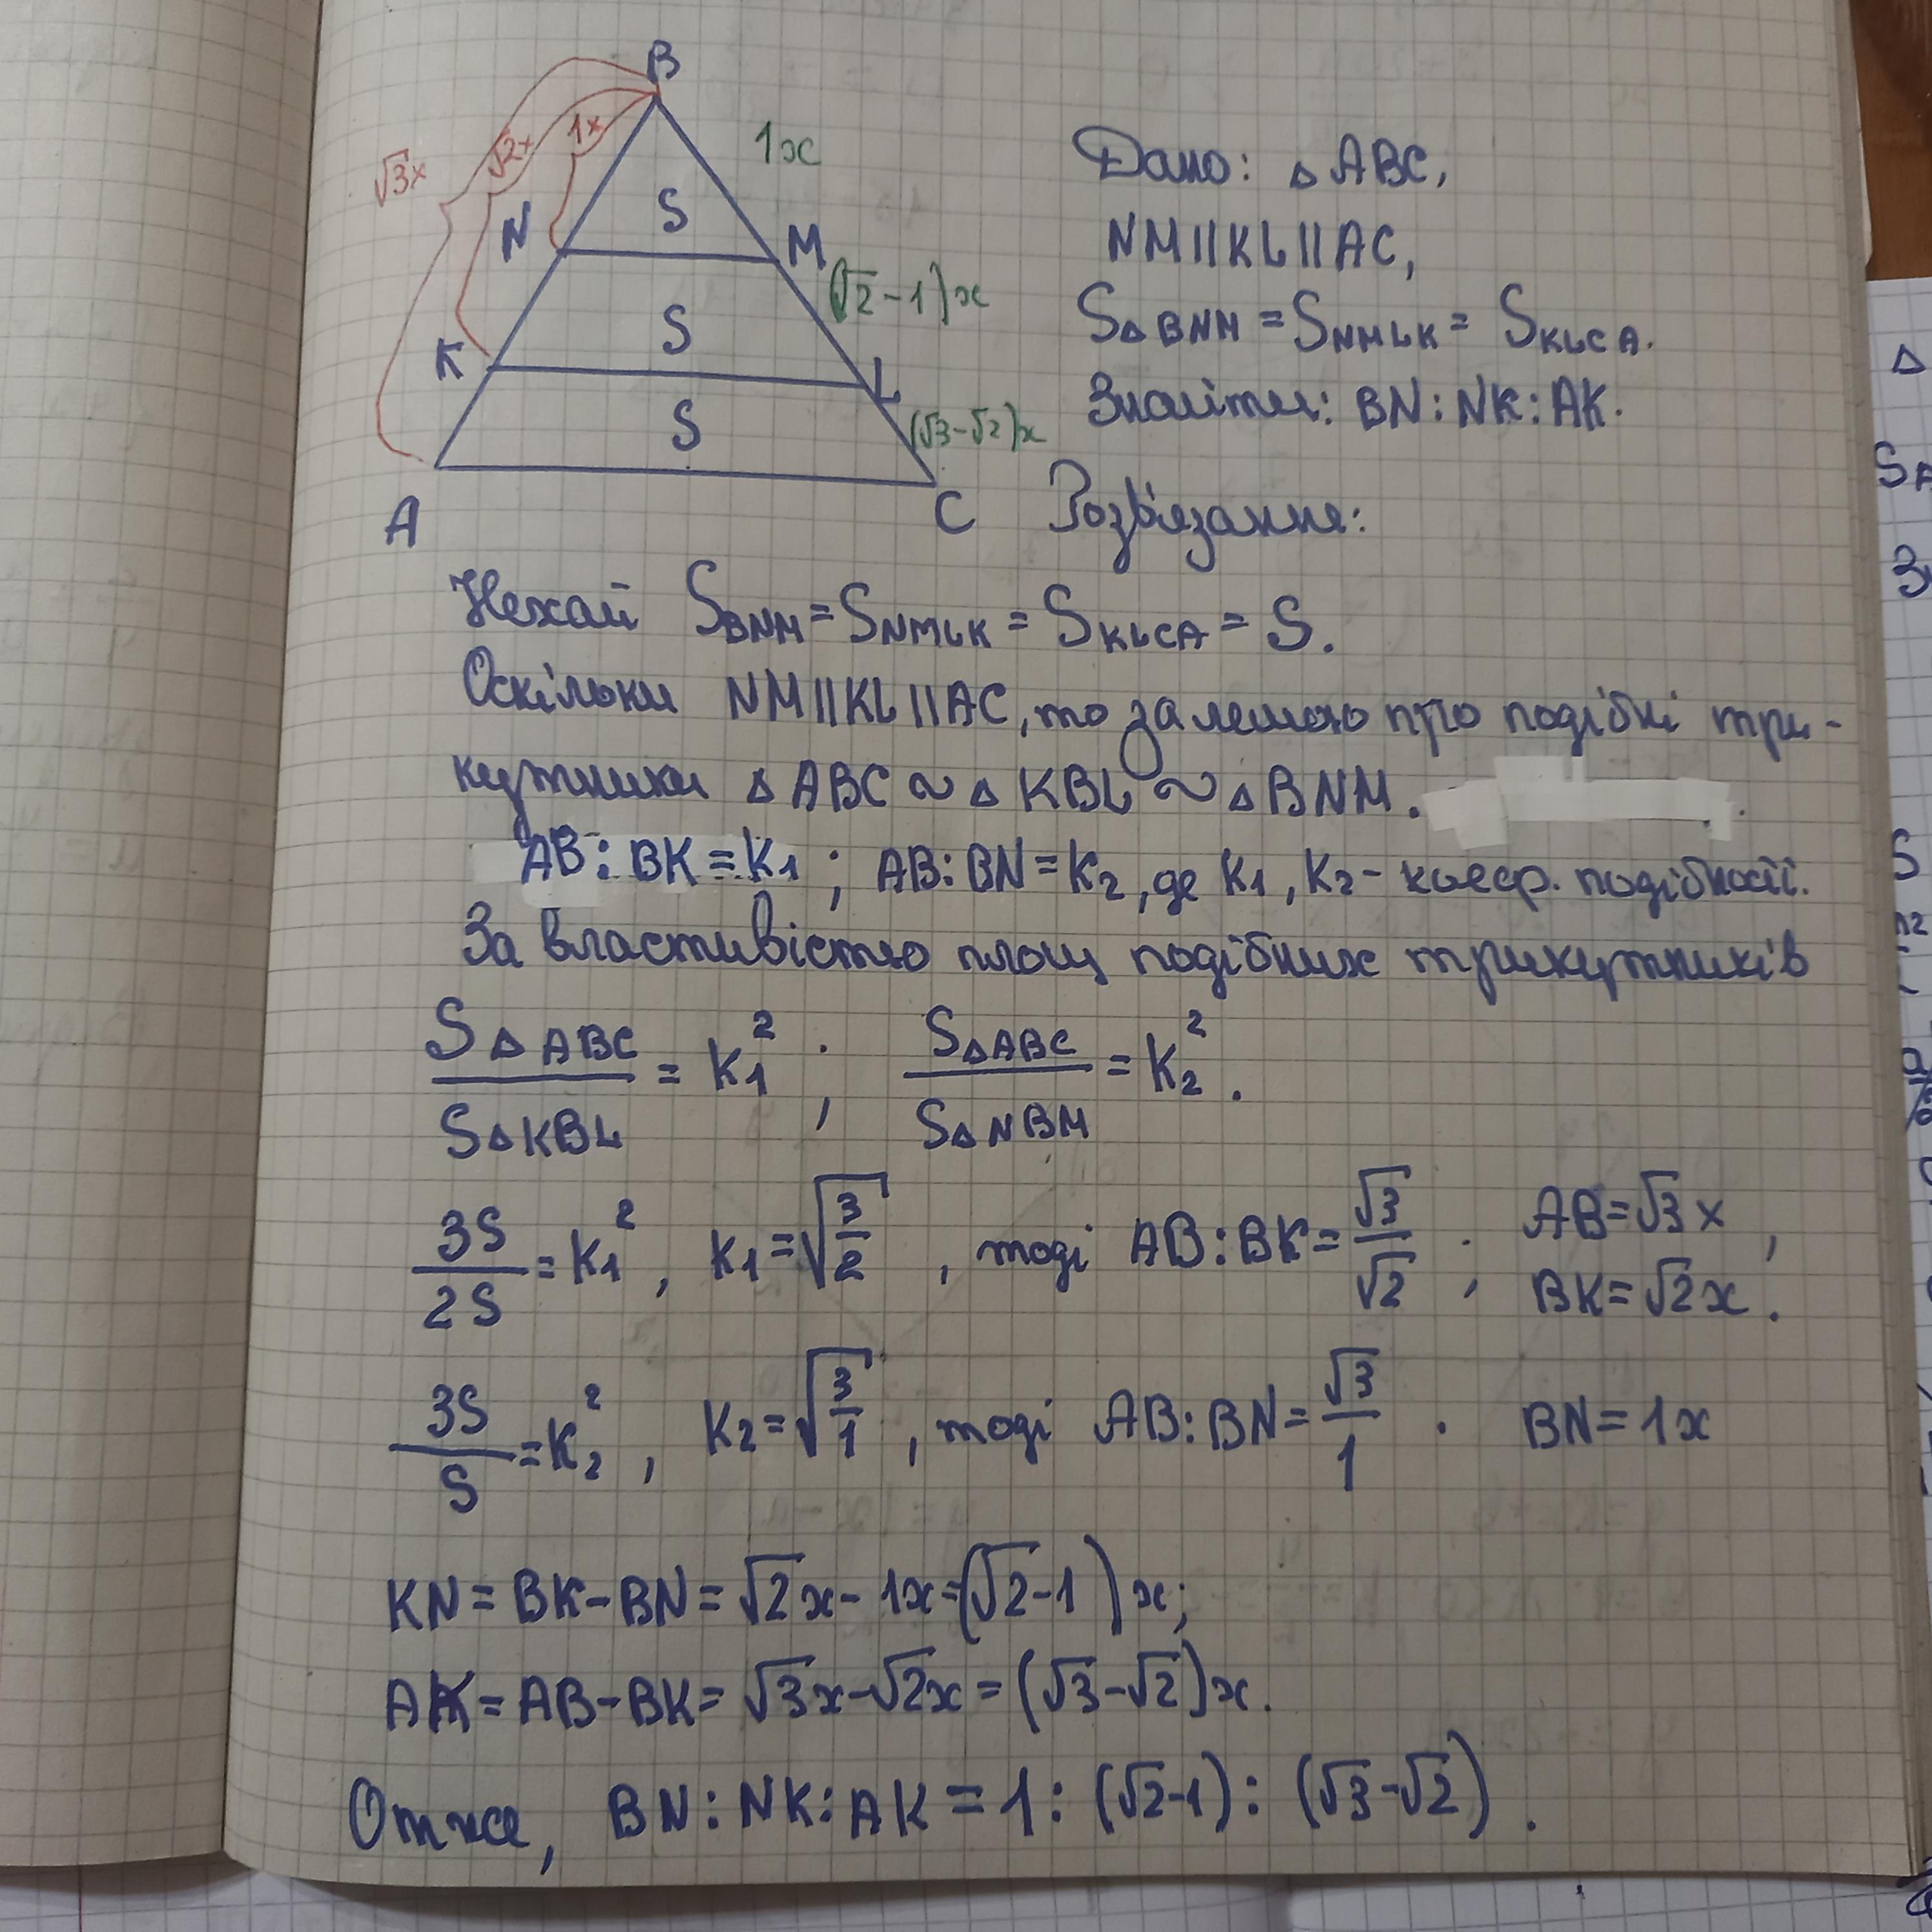 B
√3x
√2x
1x
1x
S
N
M
(√2-1)x
S
K
L
(√3-√2)x
S
A
C
Дано: △ABC,
NM||KL||AC,
S△BNM = SNMLK = SKLCA.
Знайти: BN:NK:AK.
Розв'язання:
Нехай SBNM = SNMLK = SKLCA = S.
Оскільки NM||KL||AC, то за лемою про подібні три-
кутники △ABC ~ △KBL ~ △BNM.
AB:BK = K1; AB:BN = K2, де K1, K2 - коеф. подібності.
За властивістю площ подібних трикутників
S△ABC/S△KBL = K1²; S△ABC/S△NBM = K2².
3S/2S = K1², K1 = √(3/2), тоді AB:BK = √3/√2; AB = √3x, BK = √2x.
3S/S = K2², K2 = √(3/1), тоді AB:BN = √3/1. BN = 1x
KN = BK-BN = √2x - 1x = (√2-1)x;
AK = AB-BK = √3x-√2x = (√3-√2)x.
Отже, BN:NK:AK = 1:(√2-1):(√3-√2).